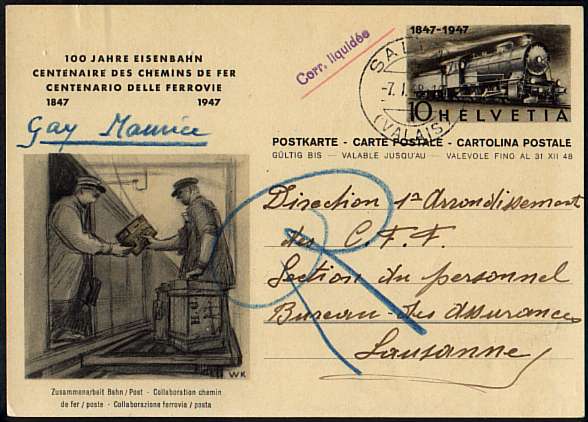 100 JAHRE EISENBAHN
CENTENAIRE DES CHEMINS DE FER
CENTENARIO DELLE FERROVIE
1847 1947
Gay Maurice
Corr. liquidée
1847-1947
-7.I.
(VALAIS)
10 HELVETIA
POSTKARTE - CARTE POSTALE - CARTOLINA POSTALE
GÜLTIG BIS — VALABLE JUSQU'AU — VALEVOLE FINO AL 31 XII 48
Direction 1er Arrondissement
des C.F.F.
Section du personnel
Bureau des assurances
Lausanne
R
WK
Zusammenarbeit Bahn / Post - Collaboration chemin
de fer / poste - Collaborazione ferrovia / posta